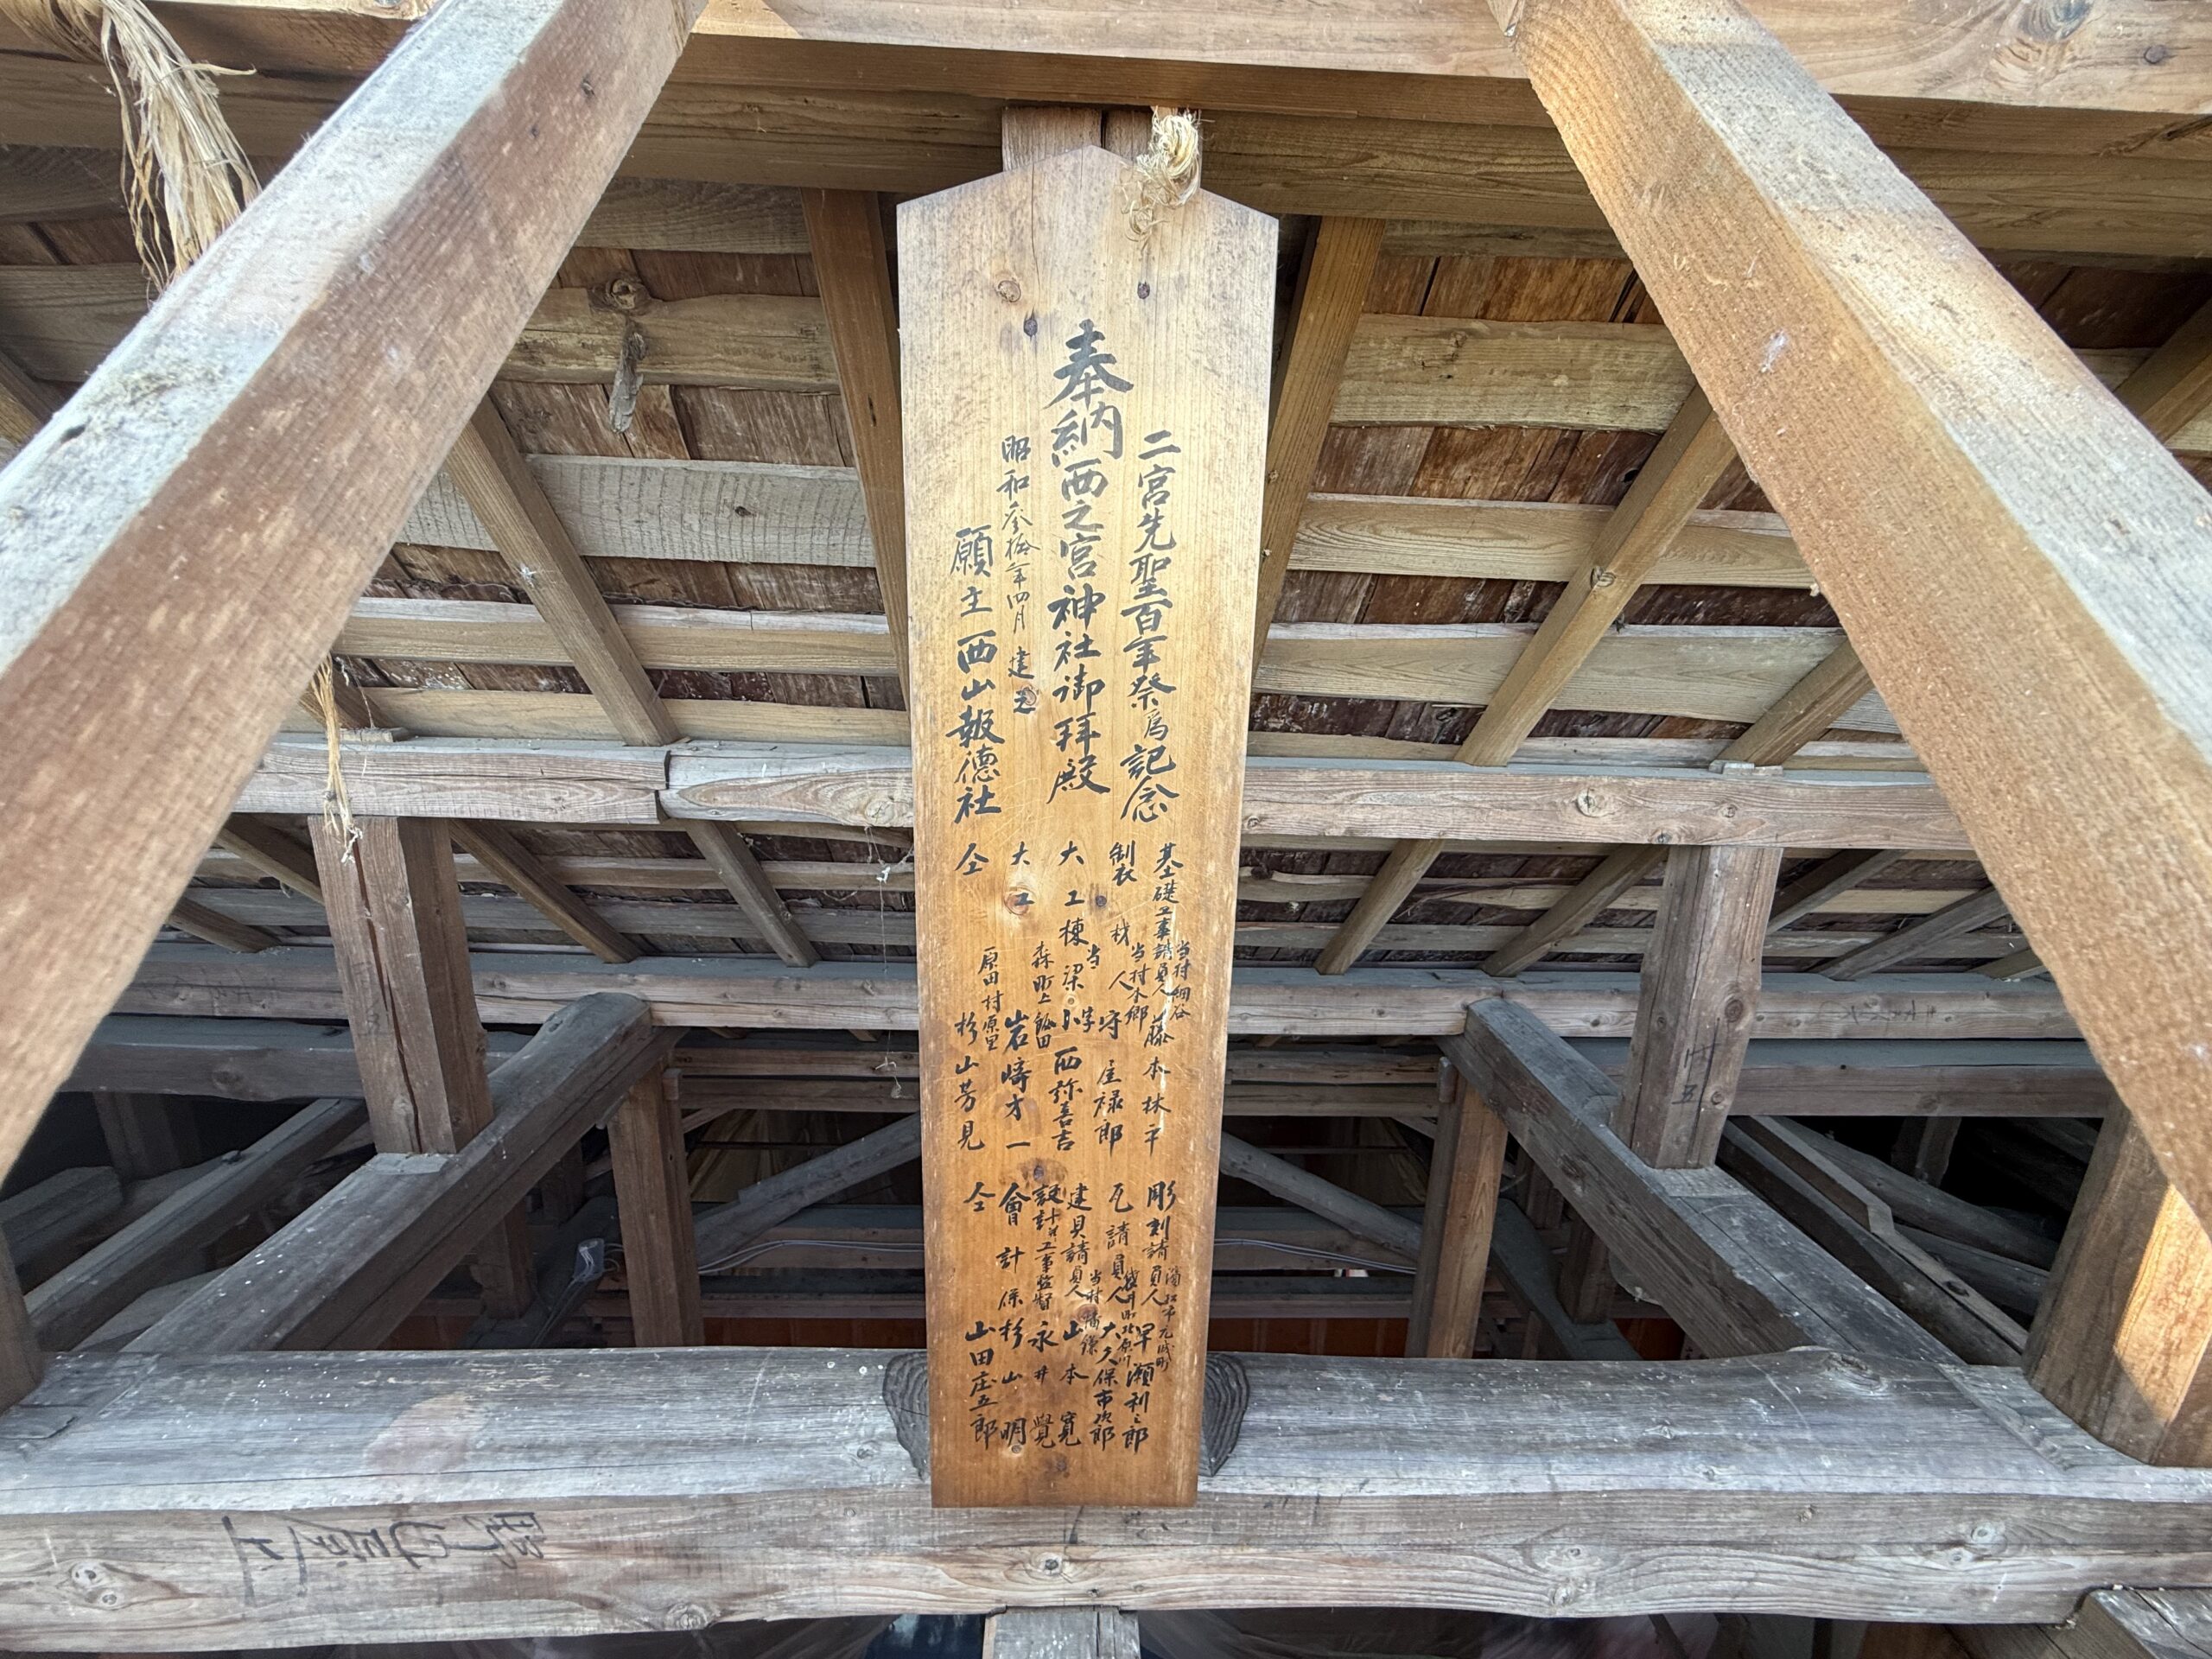 二宮先聖百年祭為記念
奉納西之宮神社御拝殿
昭和参拾年四月 建之
願主 西山報德社
基礎工事請負人 当村細谷 藤本林平
製材人 当村本郷 守屋禄郎
大工棟梁 当字 小西弥喜吉
大工 森町上飯田 岩崎才一
仝 原田村原里 杉山芳見
彫刻請負人 濱松市元城町 早瀬利三郎
瓦請負人 大久保市次郎
建具請負人 当村 山本寛
設計、工事監督 永井覺
會計係 杉山明
仝 山田庄五郎